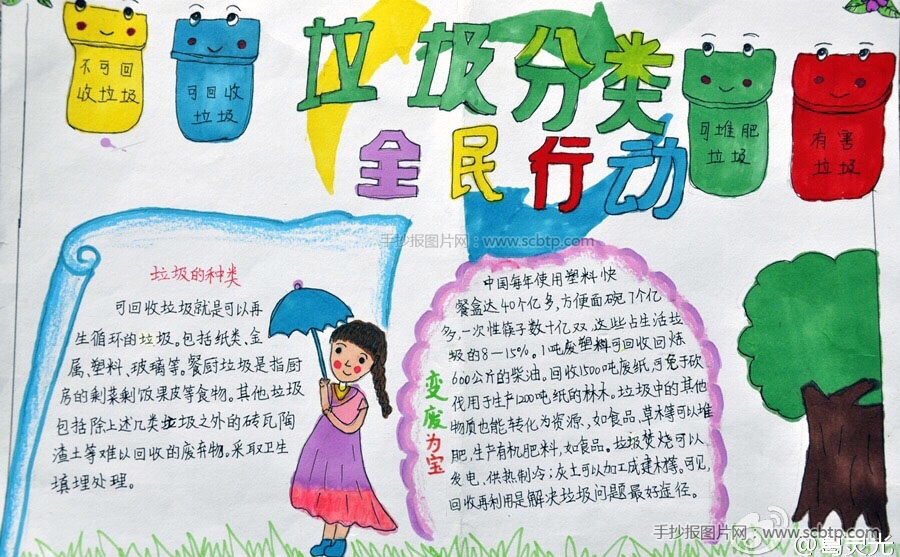 不可回
收垃圾
可回收
垃圾
垃圾分类
全民行动
可堆肥
垃圾
有害
垃圾
手抄报图片网:www.scbtp.com
垃圾的种类
可回收垃圾就是可以再
生循环的垃圾。包括纸类、金
属、塑料、玻璃等。餐厨垃圾是指厨
房的剩菜剩饭果皮等食物。其他垃圾
包括除上述几类垃圾之外的砖瓦陶
渣土等难以回收的废弃物。采取卫生
填埋处理。
变废为宝
中国每年使用塑料快
餐盒达40个亿多,方便面碗7个亿
多,一次性筷子数十亿双,这些占生活垃
圾的8-15%。1吨废塑料可回收回炼
600公斤的柴油。回收1500吨废纸,可免于砍
伐用于生产1200吨纸的林木。垃圾中的其他
物质也能转化为资源,如食品、草木等可以堆
肥,生产有机肥料,如食品。垃圾焚烧可以
发电、供热制冷;灰土可以加工成建材等。可见,
回收再利用是解决垃圾问题最好途径。
手抄报图片网 www.scbtp.com